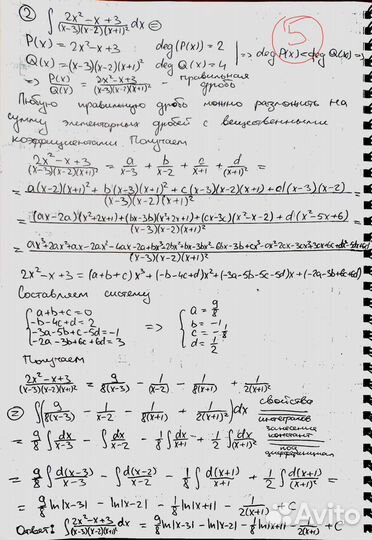 ② ∫ (2x²-x+3)/((x-3)(x-2)(x+1)²) dx ⊜
5
P(x) = 2x²-x+3 deg(P(x)) = 2
Q(x) = (x-3)(x-2)(x+1)² deg Q(x) = 4 |=> deg P(x) < deg Q(x) =>
=> P(x)/Q(x) = (2x²-x+3)/((x-3)(x-2)(x+1)²) - правильная дробь
Любую правильную дробь можно разложить на
сумму элементарных дробей с вещественными
коэффициентами. Получаем
(2x²-x+3)/((x-3)(x-2)(x+1)²) = a/(x-3) + b/(x-2) + c/(x+1) + d/(x+1)² =
= (a(x-2)(x+1)² + b(x-3)(x+1)² + c(x-3)(x-2)(x+1) + d(x-3)(x-2))/((x-3)(x-2)(x+1)²) =
= ((ax-2a)(x²+2x+1)+(bx-3b)(x²+2x+1)+(cx-3c)(x²-x-2)+d(x²-5x+6))/((x-3)(x-2)(x+1)²) =
2x²-x+3 = (a+b+c)x³+(-b-4c+d)x²+(-3a-5b+c-5d)x+(-2a-3b+6c+6d)
Составляем систему
{ a+b+c=0
-b-4c+d=2
-3a-5b+c-5d=-1
-2a-3b+6c+6d=3 => { a = 9/8
b = -1
c = -1/8
d = 1/2
Получаем
(2x²-x+3)/((x-3)(x-2)(x+1)²) = 9/(8(x-3)) - 1/(x-2) - 1/(8(x+1)) + 1/(2(x+1)²)
⊜ ∫(9/(8(x-3)) - 1/(x-2) - 1/(8(x+1)) + 1/(2(x+1)²))dx = свойства интегралов
занесения констант под дифференциал
= 9/8 ∫ dx/(x-3) - ∫ dx/(x-2) - 1/8 ∫ dx/(x+1) + 1/2 ∫ dx/(x+1)² =
= 9/8 ∫ d(x-3)/(x-3) - ∫ d(x-2)/(x-2) - 1/8 ∫ d(x+1)/(x+1) + 1/2 ∫ d(x+1)/(x+1)² =
= 9/8 ln|x-3| - ln|x-2| - 1/8 ln|x+1| - 1/(2(x+1)) + C
Ответ: ∫ (2x²-x+3)/((x-3)(x-2)(x+1)²) dx = 9/8 ln|x-3| - ln|x-2| - 1/8 ln|x+1| - 1/(2(x+1)) + C
Avito